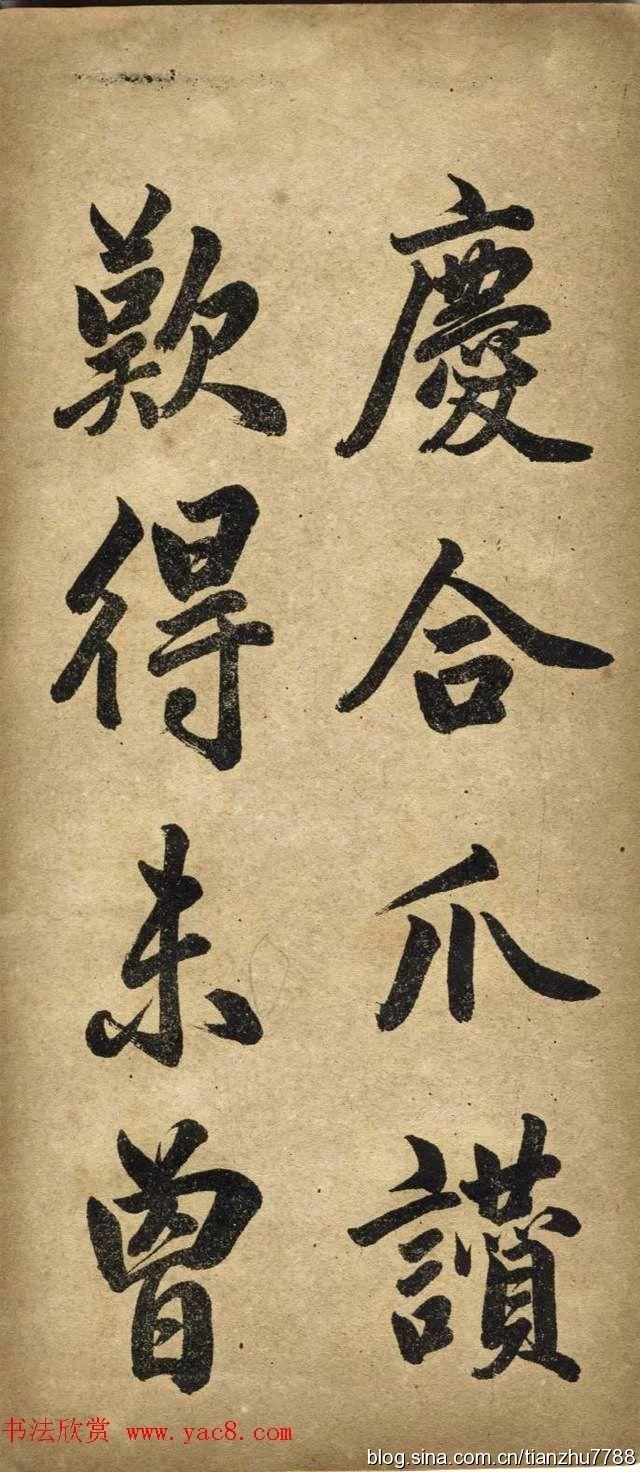 慶合爪讃
歎得未曾
书法欣赏 www.yac8.com
blog.sina.com.cn/tianzhu7788